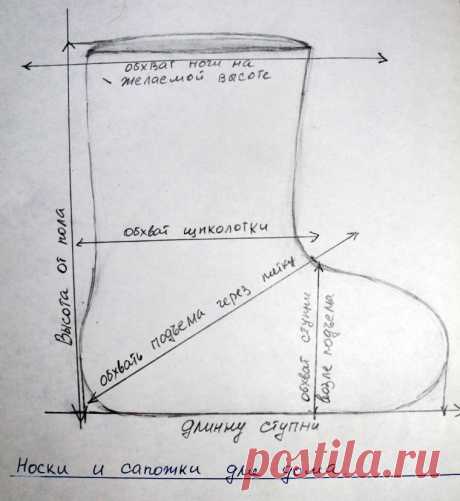 обхват ноги на
желаемой высоте
Высота от пола
обхват щиколотки
обхвать подъема через пятку
обхват ступни
возле подъема
длинну ступни
Носки и сапожки для дома
postila.ru